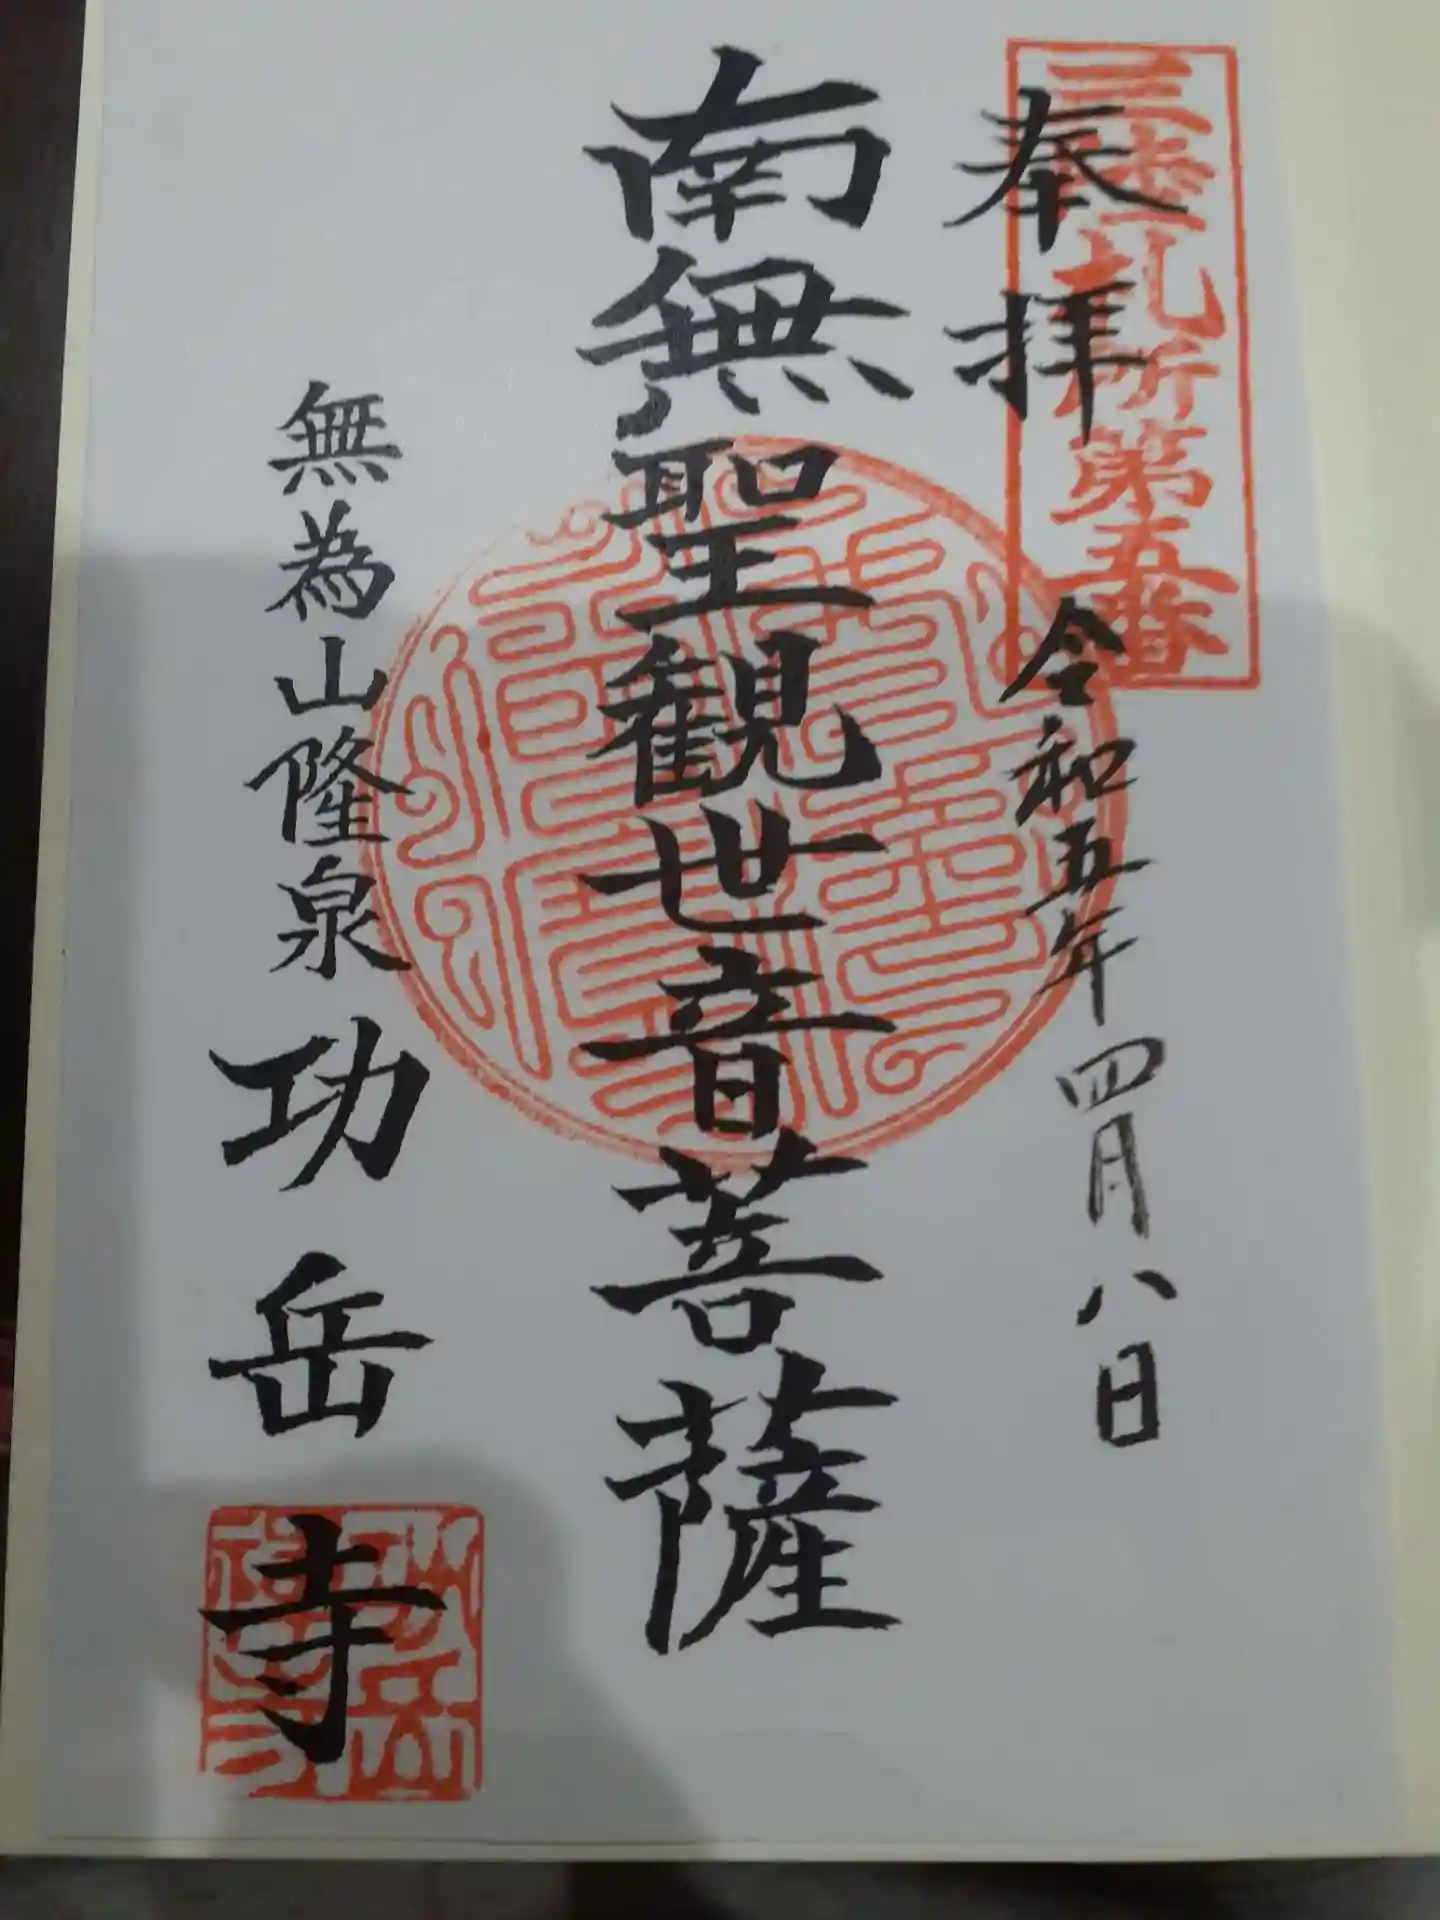 三壺札所第五番
奉拝
令和五年四月八日
南無聖観世音菩薩
無為山隆泉
功岳寺